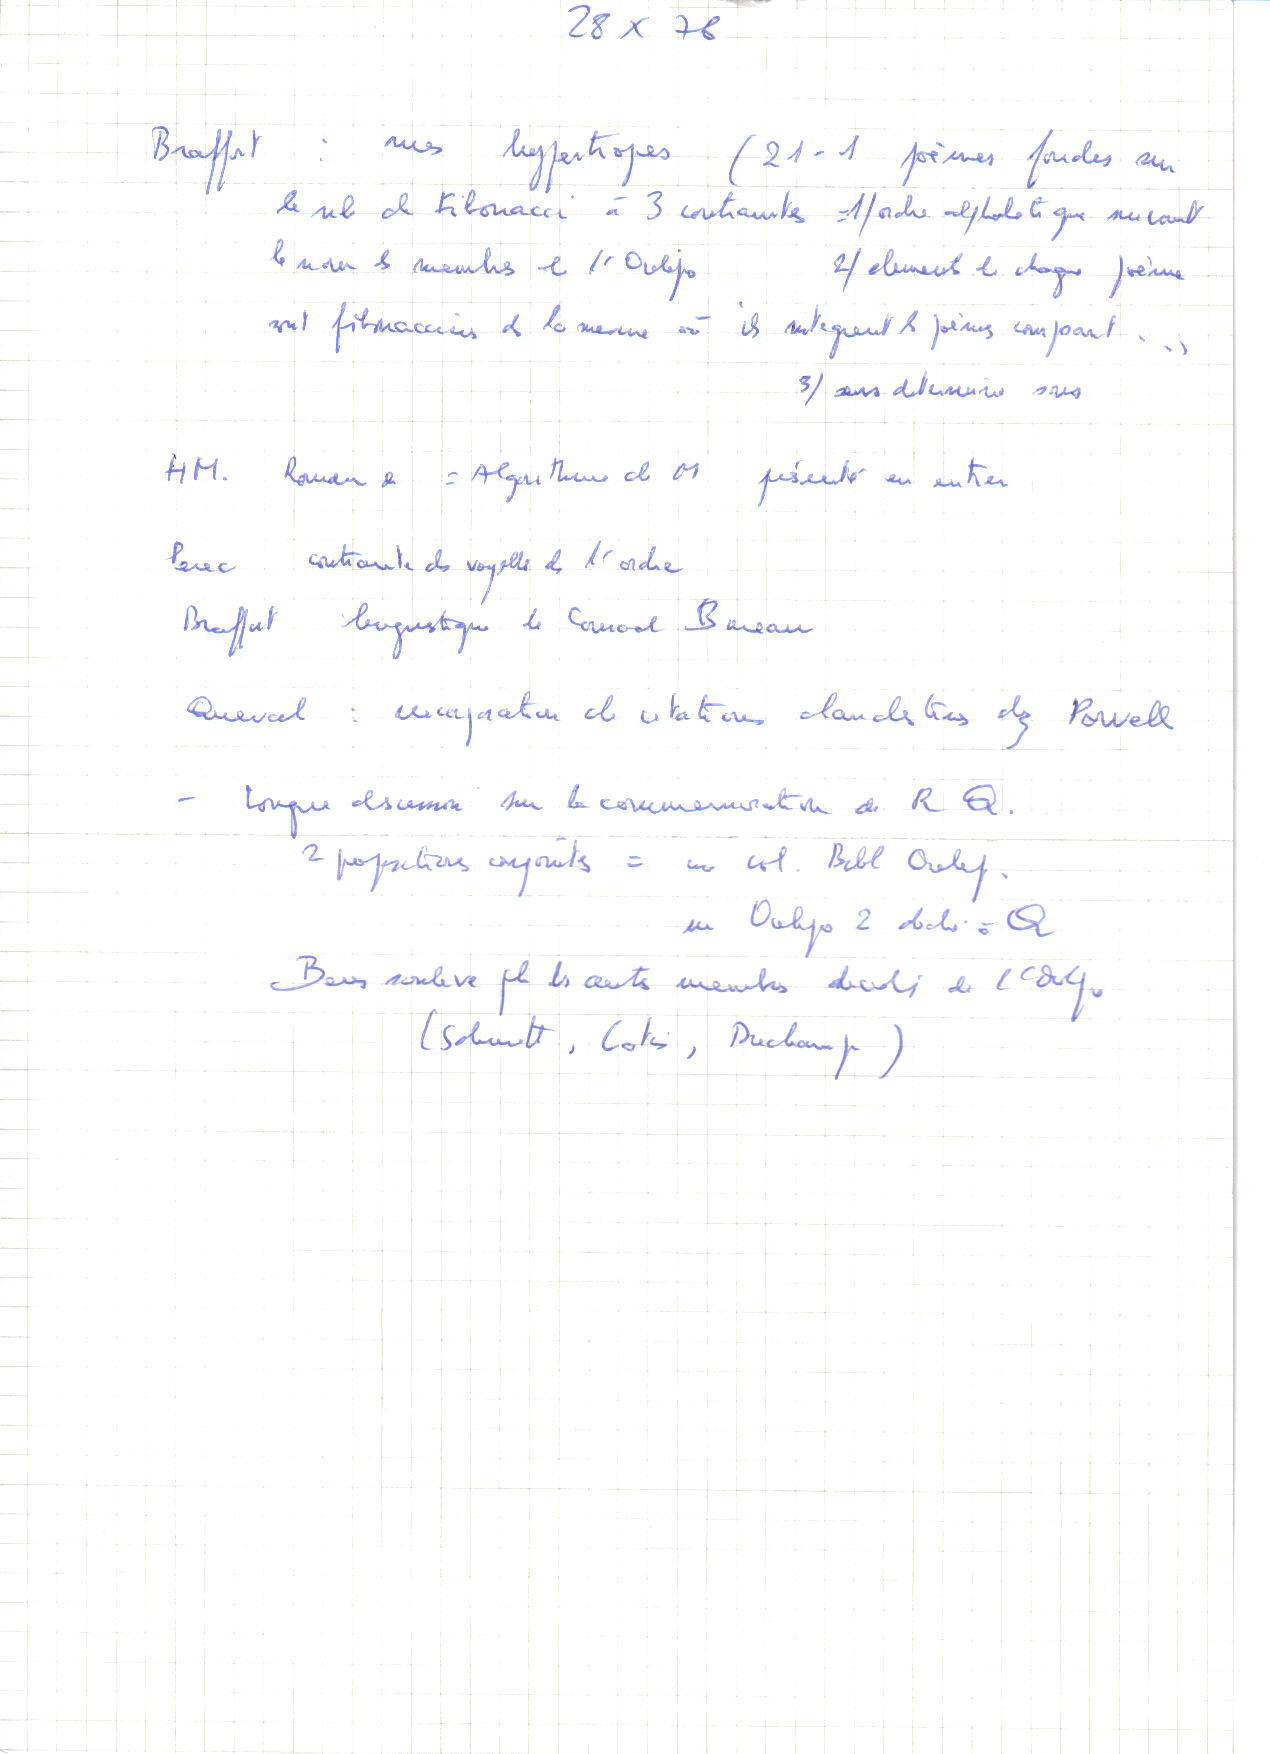 28 X 76
Braffort : mes hypertropes (21-1 poèmes fondés sur
le nb de Fibonacci à 3 contraintes = 1/ ordre alphabetique suivant
le nom des membres de l'Oulipo 2/ elements de chaque poème
sont fibonacciens ds la mesure où ils integrent les poèmes composant ...
3/ sens
HM. Roman = Algorithme de M présenté en entier
Perec contrainte des voyelles ds l'ordre
Braffort linguistique de Conrad Bureau
Queval : incorporation de citations clandestines chez Powell
- Longue discussion sur la commemoration de R Q.
2 propositions conjointes = un vol. Bibl Oulip.
un Oulipo 2 dédié à Q
Bens soulève pb des autres membres décédés de l'Oulipo
(Schmidt, Latis, Duchamp)